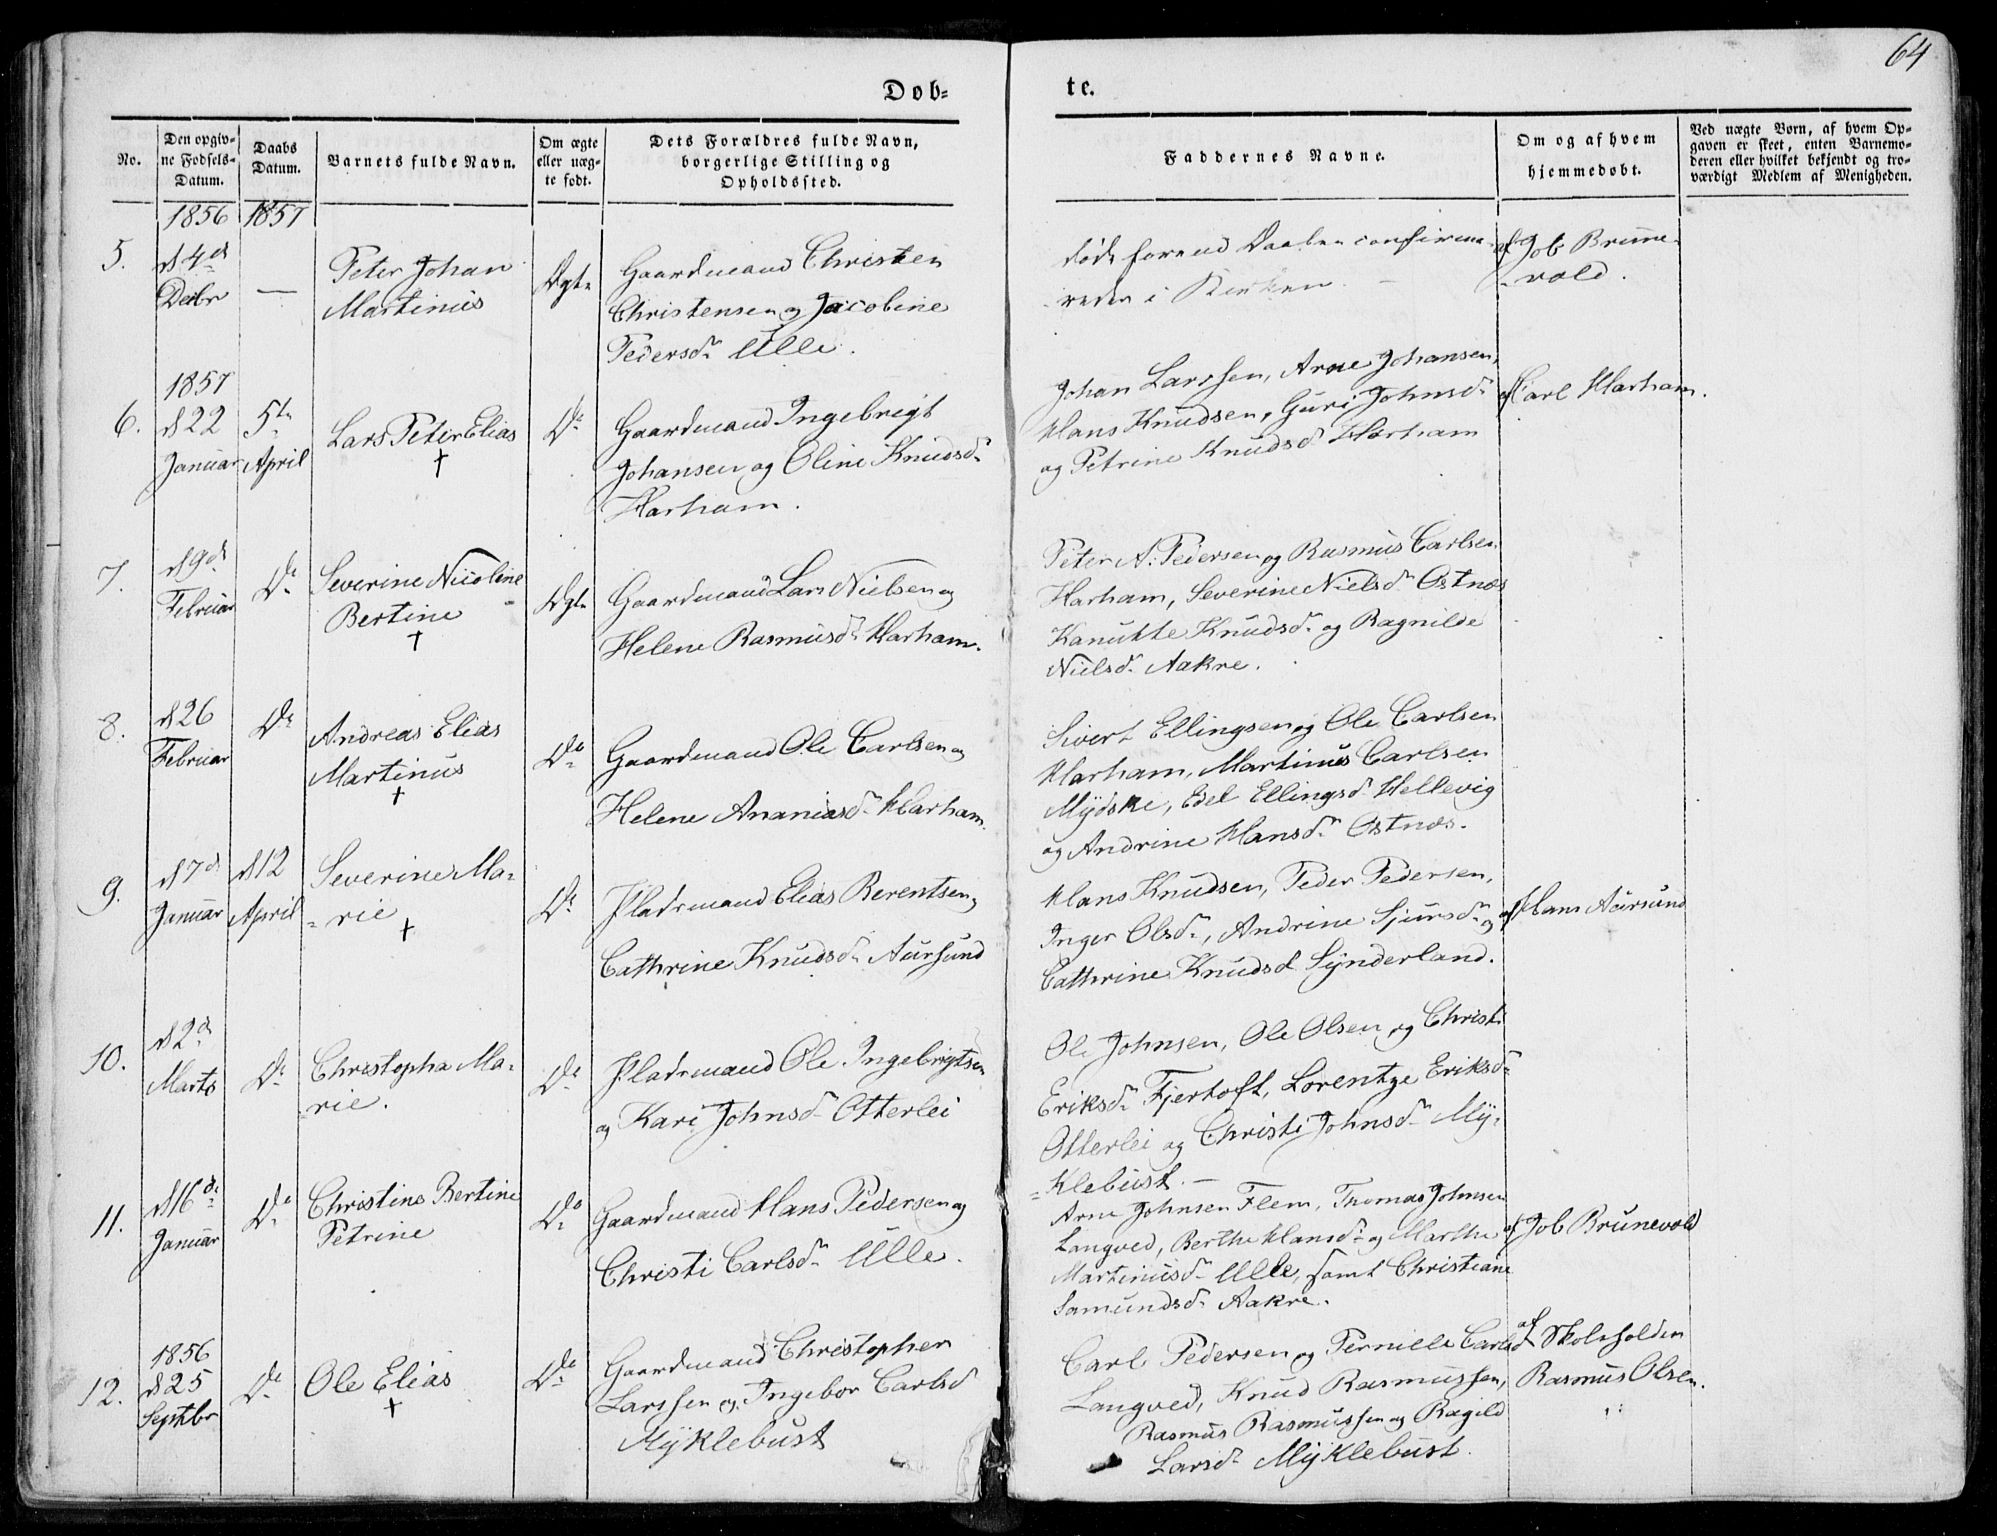 64
Døb-
te.
No.
Den opgiv-
ne Fødsels-
Datum.
Daabs
Datum.
Barnets fulde Navn.
Om ægte
eller uæg-
te født.
Dets Forældres fulde Navn,
borgerlige Stilling og
Opholdssted.
Faddernes Navne.
Om og af hvem
hjemmedøbt.
Ved uægte Børn, af hvem Op-
gaven er skeet, enten Barnemo-
deren eller hvilket bekjendt og tro-
værdigt Medlem af Menigheden.
1856
1857
5.
d 4de
Decbr
—
Peter Johan
Martinus
Ægte
Gaardmand Christen
Christensen og Jacobine
Pedersdr Ulle.
død forend Daaben confirme-
redes i Kirken. —
af Job Brune-
vold.
1857
6.
d 22
Januar
5te
April
Lars Peter Elias
†
Do
Gaardmand Ingebrigt
Johansen og Oline Knudsdr
Harham.
Johan Larssen, Arne Johansen,
Hans Knudsen, Guri Johnsdr
og Petrine Knudsd Harham
af Carl Harham.
7.
d 9de
Februar
Do
Severine Nicoline
Bertine
†
Ægte
Gaardmand Lars Nielsen og
Helene Rasmusdr Harham.
Peter A. Pedersen og Rasmus Carlsen
Harham, Severine Nielsdr Østnes
Kanutte Knudsdr og Ragnilde
Nielsdr Aakre.
8.
d 26
Februar
Do
Andreas Elias
Martinus
†
Do
Gaardmand Ole Carlsen og
Helene Ananiasdr Harham.
Sivert Ellingsen og Ole Carlsen
Harham, Martinus Carlsen
Mydske, Edel Ellingsdr Hellevig
og Andrine Hansdr Østnes.
9.
d 7de
Januar
d 12
April
Severine Ma-
rie
†
Do
Pladsmand Elias Berentsen og
Cathrine Knudsdr Aursund
Hans Knudsen, Peder Pedersen,
Inger Olsdr, Andrine Sjursdr og
Cathrine Knudsd Synderland.
af Hans Aursund
10.
d 2de
Marts
Do
Christopha Ma-
rie.
Do
Pladsmand Ole Ingebrigtsen
og Kari Johnsdr Otterlei
Ole Johnsen, Ole Olsen og Christi
Eriksdr Fjertoft, Lorentze Eriksdr
Otterlei og Christi Johnsdr My-
klebust. —
11.
d 16de
Januar
Do
Christine Bertine
Petrine
Do
Gaardmand Hans Pedersen og
Christi Carlsdr Ulle.
Arne Johnsen Flem, Thomas Johnsen
Langved, Berthe Hansdr og Marthe
Martinusdr Ulle, samt Christiane
Samundsdr Aakre.
af Job Brunevold
1856
12.
d 25
Septbr
Do
Ole Elias
†
Do
Gaardmand Christopher
Larssen og Ingebor Carlsd
Myklebust
Carl Pedersen og Pernille Carlsd
Langved, Knud Rasmussen,
Rasmus Rasmussen og Ragild
Larsdr Myklebust.
af Skoleholder
Rasmus Olsen.